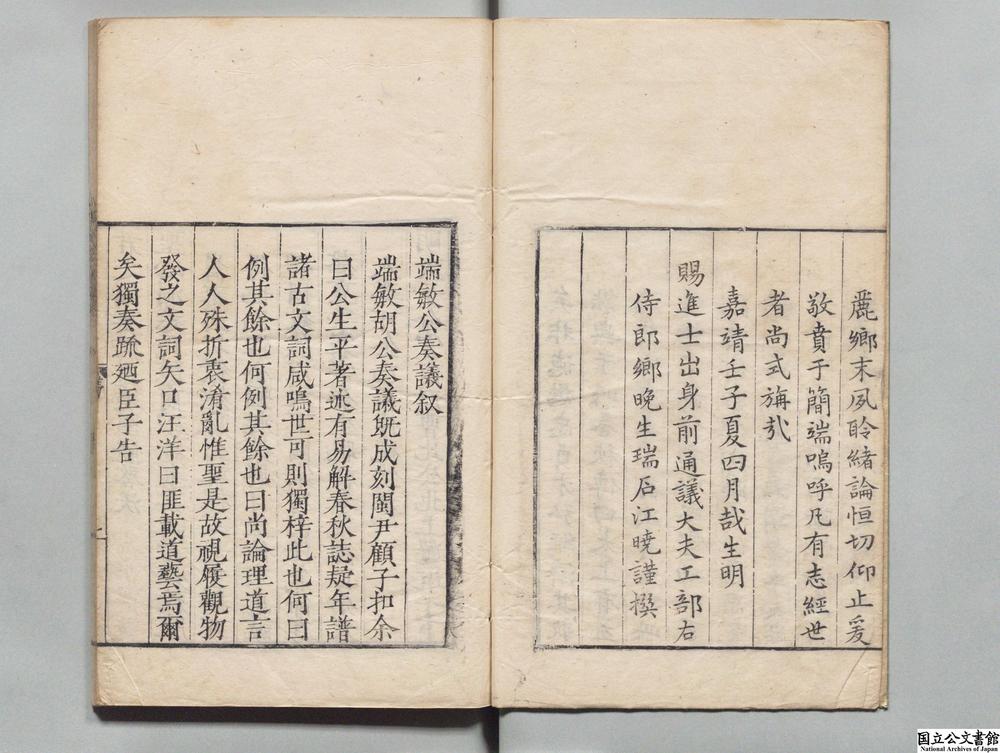 麗鄉末夙聆緒論恒切仰止爰
敬賁于簡端嗚呼凡有志經世
者尚式旃㢤
嘉靖壬子夏四月哉生明
賜進士出身前通議大夫工部右
侍郎鄉晚生瑞石江曉謹撰
端敏公奏議叙
端敏胡公奏議旣成刻閩尹顧子扣余
曰公生平著述有易解春秋誌疑年譜
諸古文詞咸鳴世可則獨梓此也何曰
例其餘也何例其餘也曰尚論理道言
人人殊折衷淆亂惟聖是故視履觀物
發之文詞矢口汪洋曰匪載道藝焉爾
矣獨奏疏廼臣子告
国立公文書館
National Archives of Japan